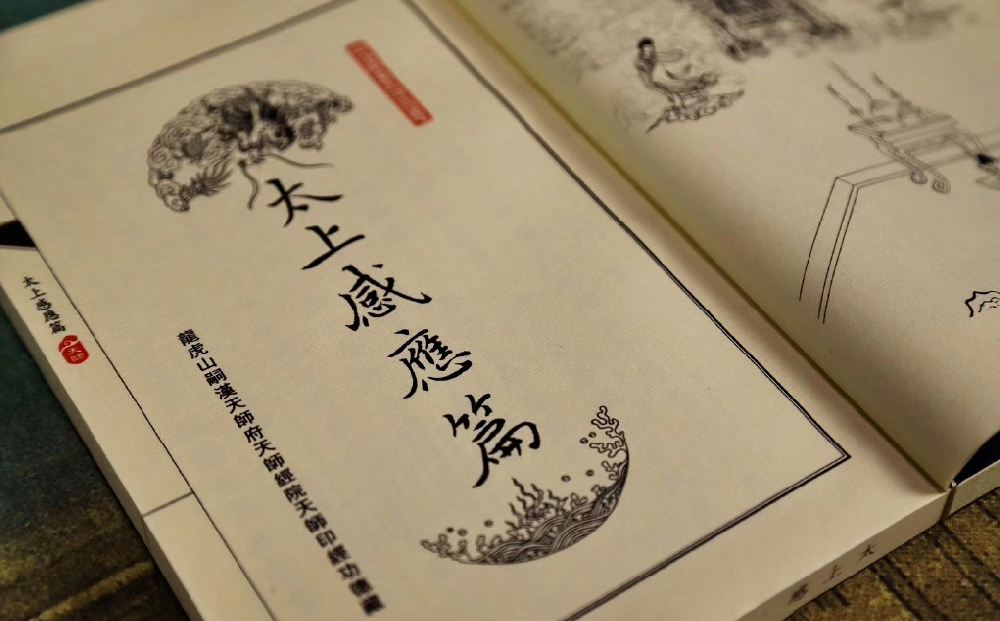 太上感應篇
龍虎山嗣漢天師府天師經院天師印經功德藏
太上感應篇
天師
太上感